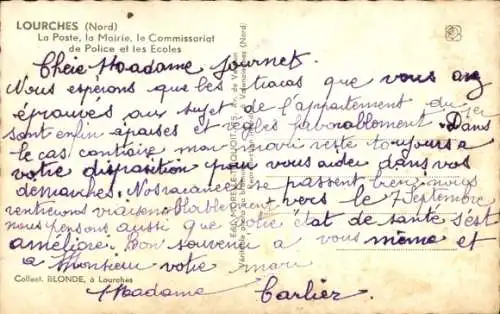 LOURCHES (Nord)
La Poste, la Mairie, le Commissariat
de Police et les Ecoles
Chère Madame Journet
Nous espérons que les tracas que vous avez
éprouvés au sujet de l'appartement
sont enfin et favorablement. Dans
le cas contraire mon mari reste toujours a
votre disposition pour vous aider dans vos
démarches. Nos vacances se passent bien nous
rentrerons vraisemblablement vers le 7 Septembre
nous pensons aussi que votre état de santé s'est
amélioré. Bon souvenir a vous même et
a Monsieur votre mari
Madame Carlier.
Collect. BLONDE, à Lourches